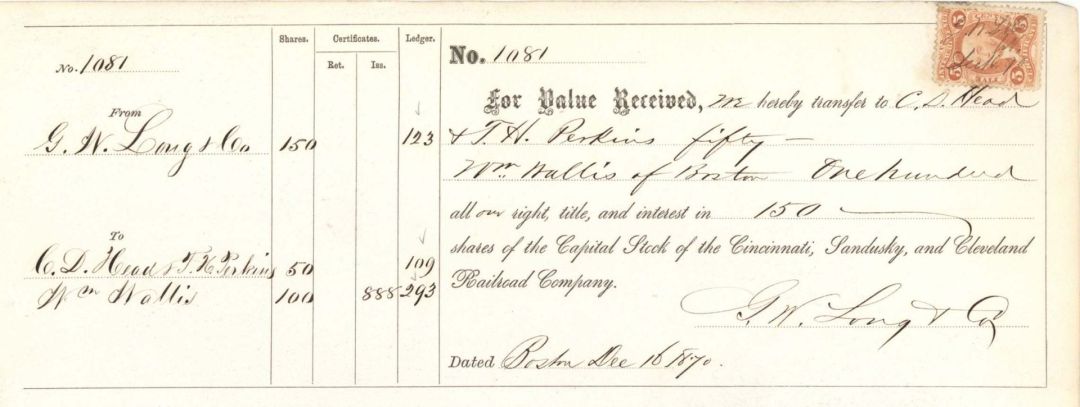 Shares. Certificates. Ledger.
Ret. Iss.
No. 1081
From
G. W. Long & Co 150 123
To
C. D. Head & T. H. Perkins 50 109
Wm Wallis 100 888 293
No. 1081
For Value Received, we hereby transfer to C. D. Head
& T. H. Perkins fifty —
Wm Wallis of Boston One hundred
all our right, title, and interest in 150
shares of the Capital Stock of the Cincinnati, Sandusky, and Cleveland
Railroad Company.
G. W. Long & Co
Dated Boston Dec 16 1870.
5 5
5 5